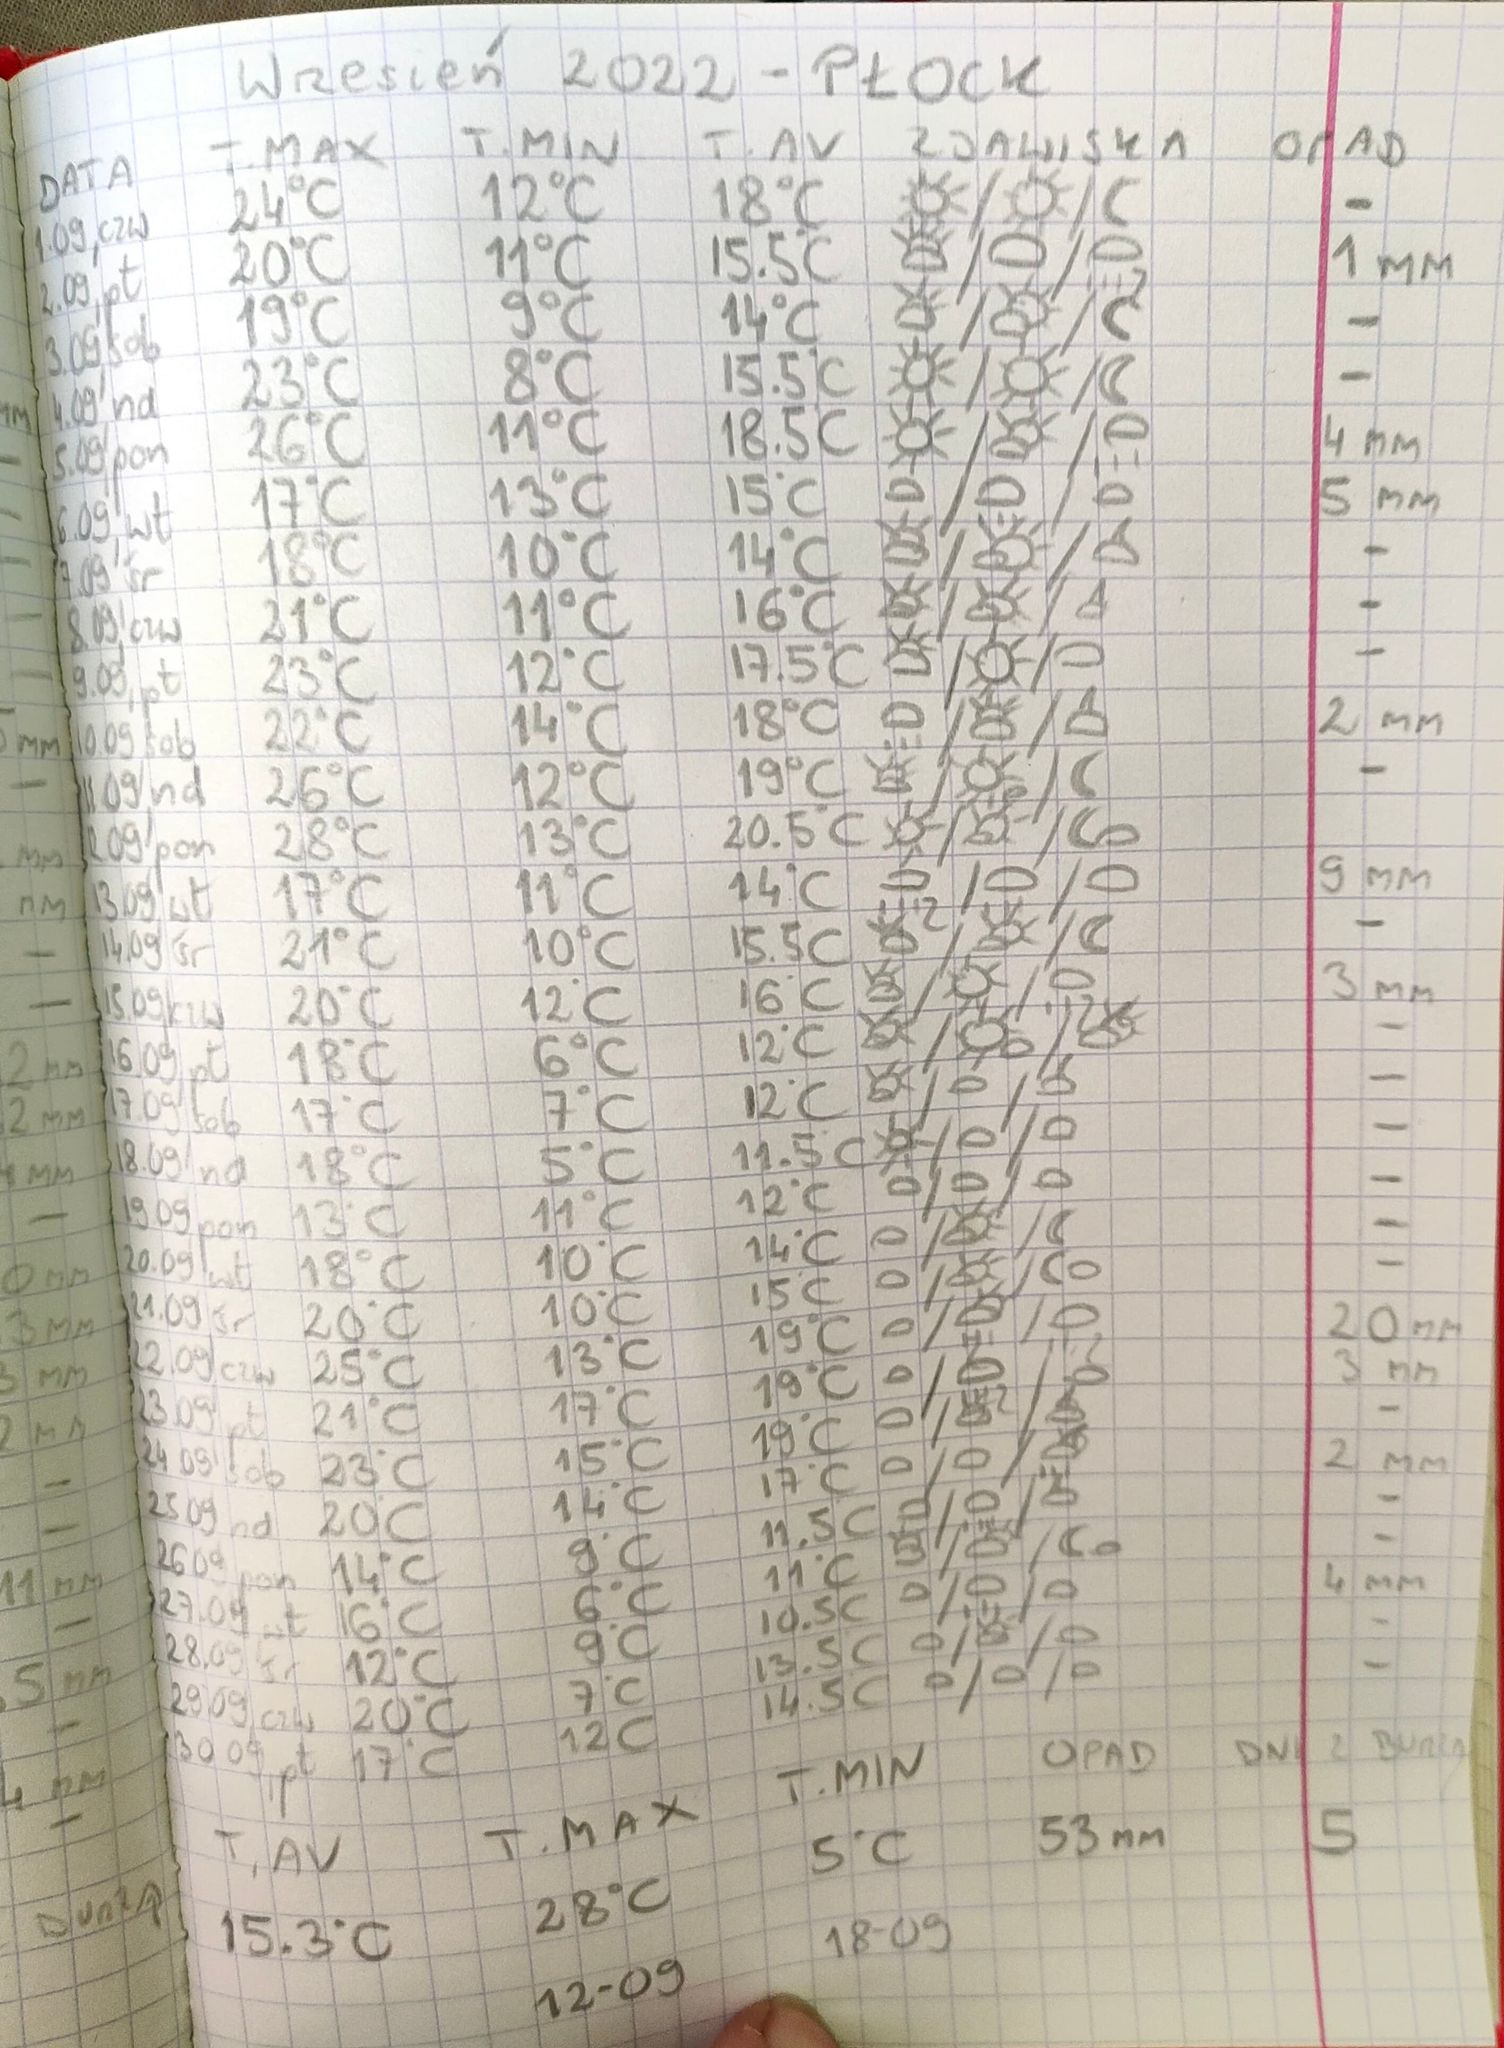 Wrzesień 2022 - PŁOCK
DATA T.MAX T.MIN T.AV ZJAWISKA OPAD
1.09, czw 24°C 12°C 18°C -
2.09, pt 20°C 11°C 15.5°C 1 mm
3.09, sob 19°C 9°C 14°C -
4.09, nd 23°C 8°C 15.5°C -
5.09, pon 26°C 11°C 18.5°C 4 mm
6.09, wt 17°C 13°C 15°C 5 mm
7.09, śr 18°C 10°C 14°C -
8.09, czw 21°C 11°C 16°C -
9.09, pt 23°C 12°C 17.5°C -
10.09, sob 22°C 14°C 18°C 2 mm
11.09, nd 26°C 12°C 19°C -
12.09, pon 28°C 13°C 20.5°C
13.09, wt 17°C 11°C 14°C 9 mm
14.09, śr 21°C 10°C 15.5°C -
15.09, czw 20°C 12°C 16°C 3 mm
16.09, pt 18°C 6°C 12°C -
17.09, sob 17°C 7°C 12°C -
18.09, nd 18°C 5°C 11.5°C -
19.09, pon 13°C 11°C 12°C -
20.09, wt 18°C 10°C 14°C -
21.09, śr 20°C 10°C 15°C -
22.09, czw 25°C 13°C 19°C 20 mm
23.09, pt 21°C 17°C 19°C 3 mm
24.09, sob 23°C 15°C 19°C -
25.09, nd 20°C 14°C 17°C 2 mm
26.09, pon 14°C 9°C 11.5°C -
27.09, wt 16°C 6°C 11°C -
28.09, śr 12°C 9°C 10.5°C 4 mm
29.09, czw 20°C 7°C 13.5°C -
30.09, pt 17°C 12°C 14.5°C -
T.AV T.MAX T.MIN OPAD DNI Z BURZĄ
15.3°C 28°C 5°C 53 mm 5
12-09 18-09
BURZĄ